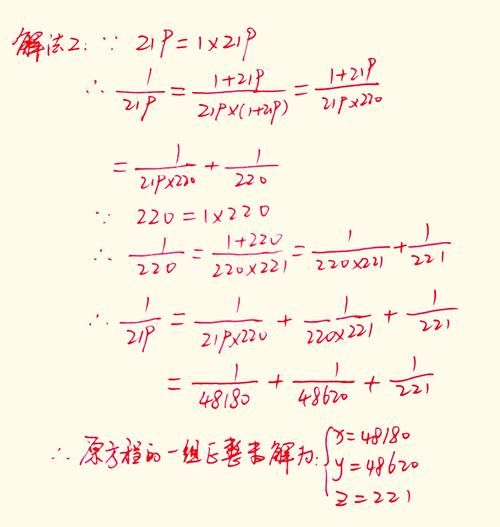 解法2: ∵ 219 = 1×219
∴ 1/219 = (1+219)/(219×(1+219)) = (1+219)/(219×220)
= 1/(219×220) + 1/220
∵ 220 = 1×220
∴ 1/220 = (1+220)/(220×221) = 1/(220×221) + 1/221
∴ 1/219 = 1/(219×220) + 1/(220×221) + 1/221
= 1/48180 + 1/48620 + 1/221
∴ 原方程的一组正整数解为: { x=48180
y=48620
z=221